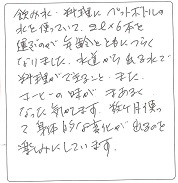 飲み水・料理にペットボトルの
水を使っていて、2ℓ×6本を
運ぶのが年齢とともにつらく
なりました。水道から出る水で
料理ができること、また
コーヒーの味がまあるく
なった気がします。数ヶ月使っ
て身体的な変化が出るのを
楽しみにしています。